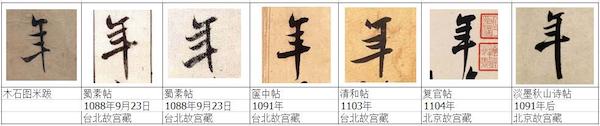 年 年 年 年 年 年 年
木石图米跋 蜀素帖 蜀素帖 箧中帖 清和帖 复官帖 淡墨秋山诗帖
1088年9月23日 1088年9月23日 1091年 1103年 1104年 1091年后
台北故宫藏 台北故宫藏 台北故宫藏 台北故宫藏 北京故宫藏 北京故宫藏